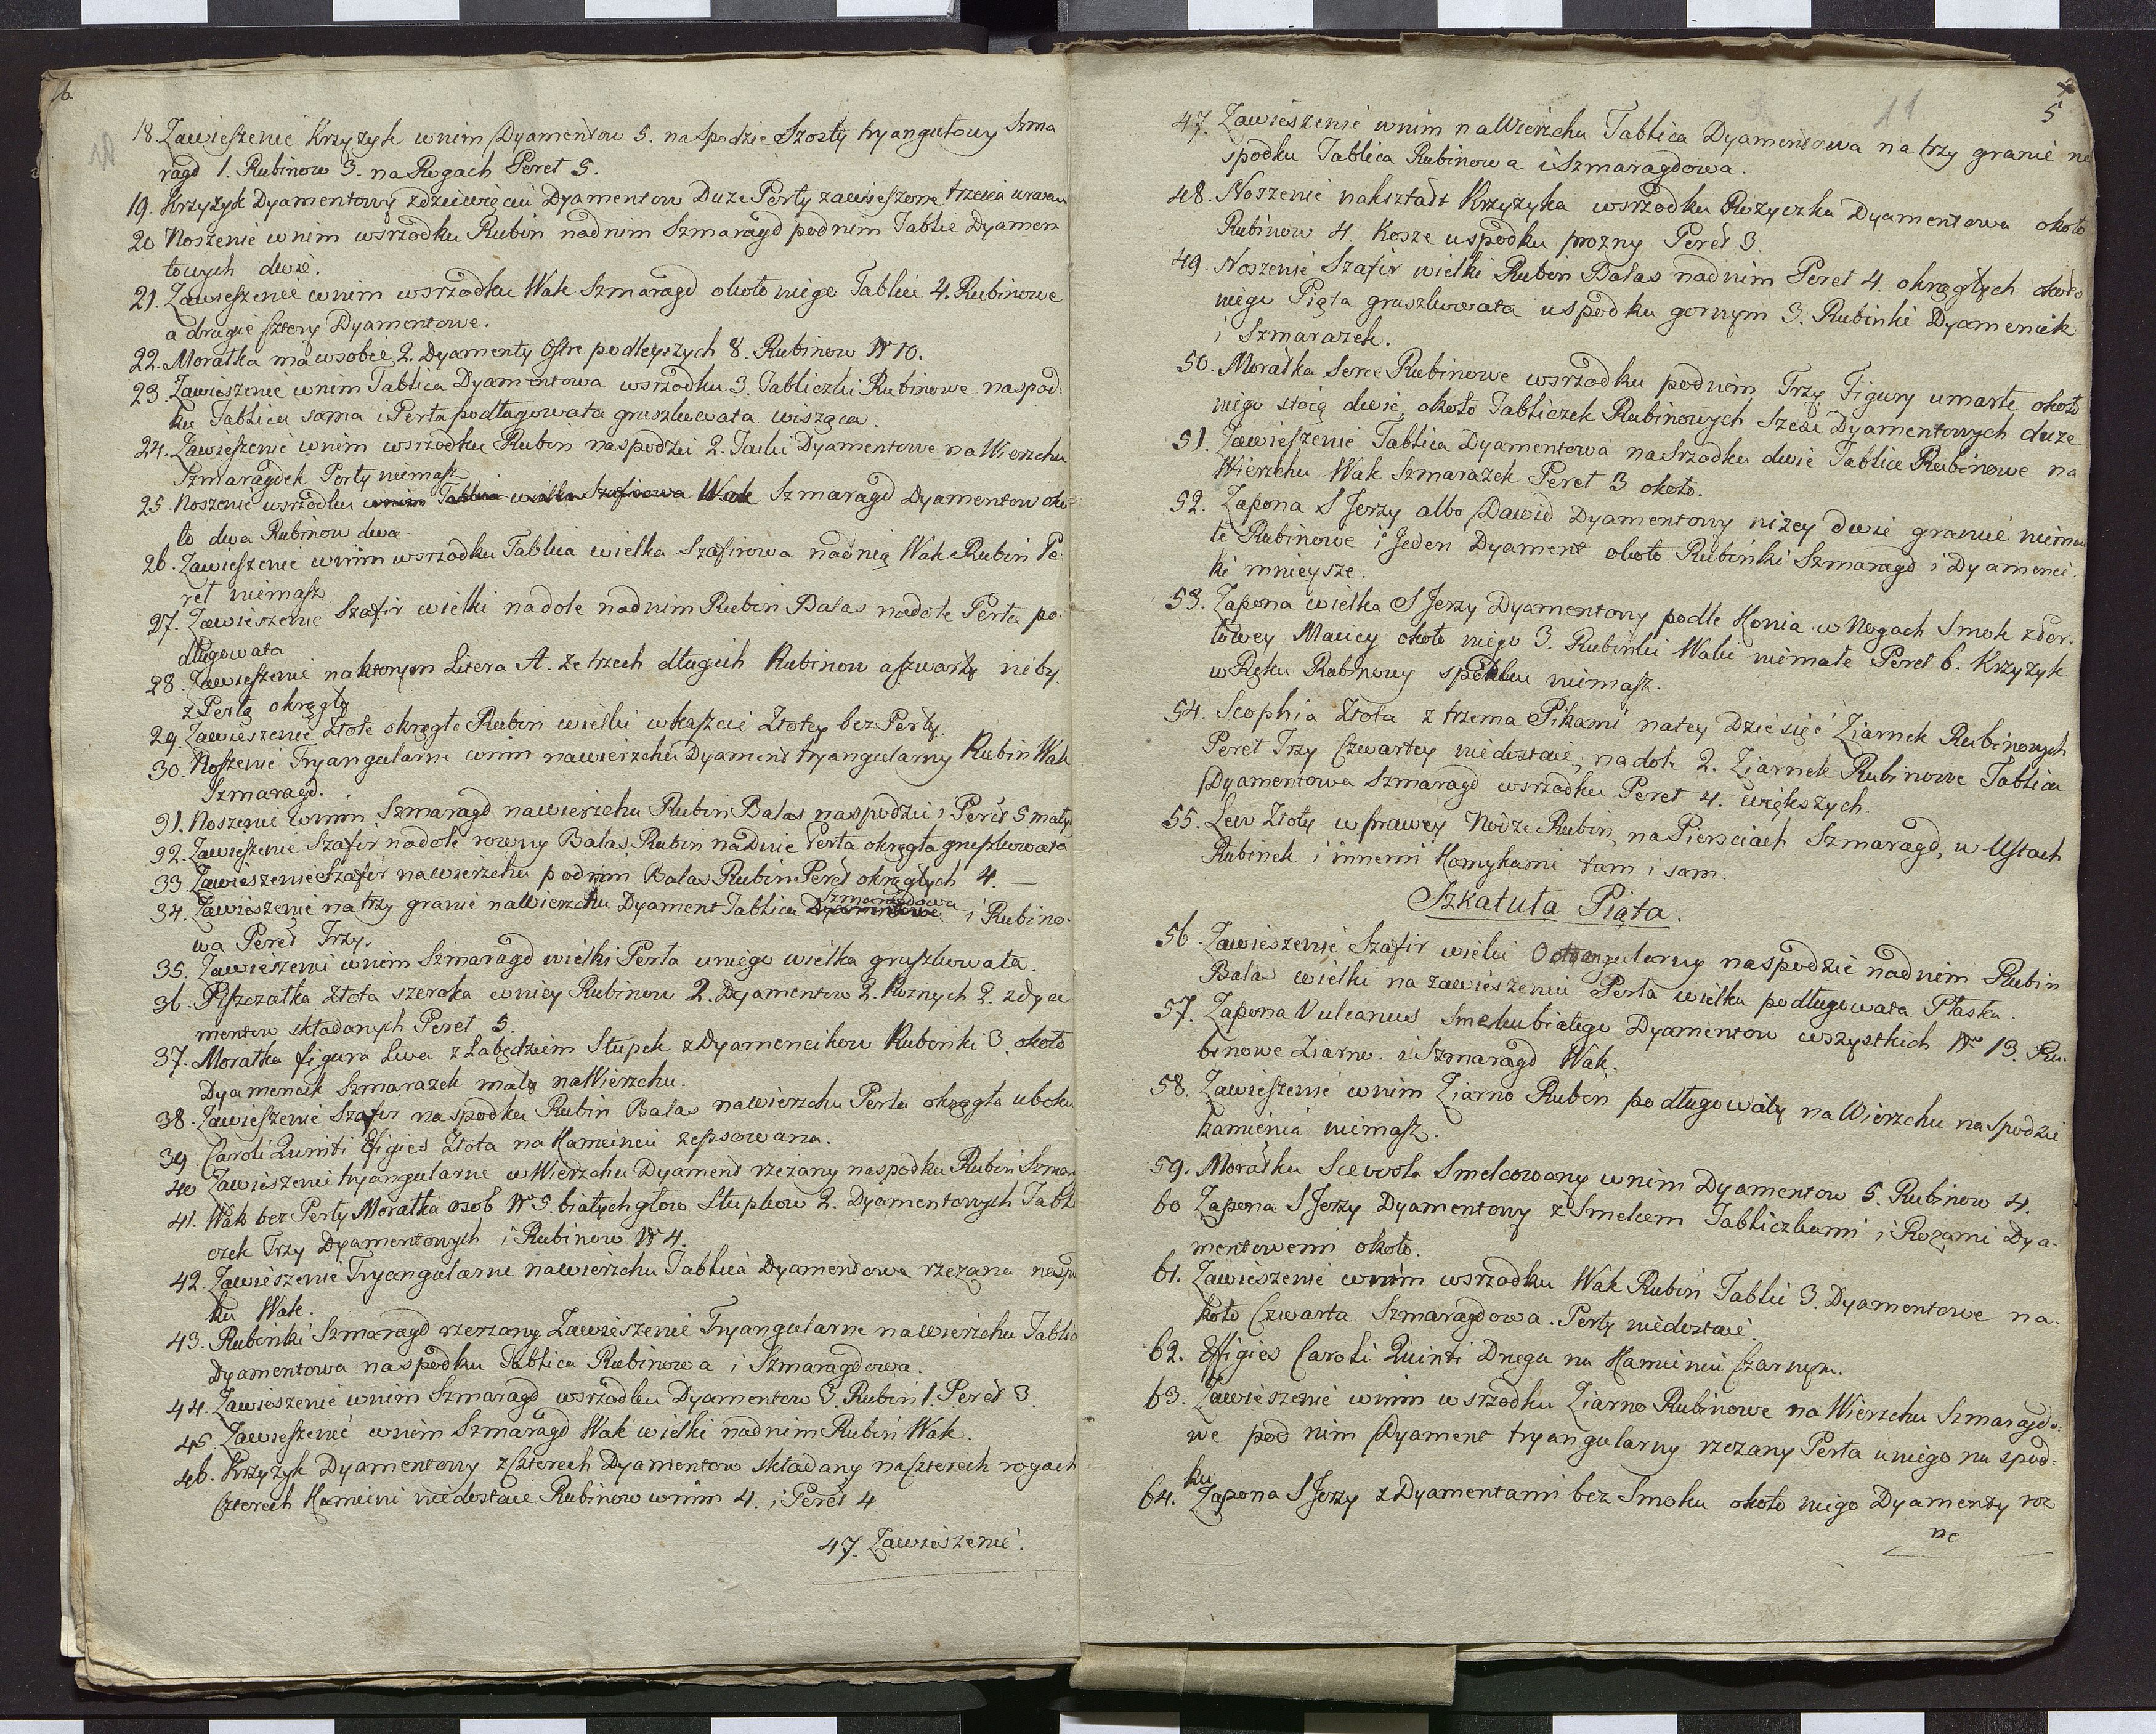 18. Zawieszenie Krzyzyk wnim Dyamentow 5. na Spodzie Szosty tryangułowy Szma
ragd 1. Rubinow 3. na Rogach Pereł 5.
19. Krzyzyk Dyamentowy zdziewięciu Dyamentow Duze Perły zawieszone trzecia
20 Noszenie wnim wsrzodku Rubin nadnim Szmaragd podnim Tablic Dyamen
towych dwie.
21. Zawieszenie wnim wsrzodku Wak Szmaragd około niego Tablic 4. Rubinowe
a drugie sztery Dyamentowe.
22. Morałka ma wsobie 2. Dyamenty Ostre podleyszych 8. Rubinow Nr 10.
23. Zawieszenie wnim Tablica Dyamentowa wsrzodku 3. Tabliczki Rubinowe naspod:
ku Tablica sama i Perła podługowata gruszkowata wisząca.
24. Zawieszenie wnim wsrzodku Rubin naspodzie 2. Dyamentowe na Wierzchu
Szmaragdek Perły niemasz
25. Noszenie wsrzodku wnim Tablica wielka Szafirowa Wak Szmaragd Dyamentow oko-
ło dwa Rubinow dwa.
26. Zawieszenie wnim wsrzodku Tablica wielka Szafirowa nadnią Wak Rubin Pe
reł niemasz
27. Zawieszenie Szafir wielki nadole nadnim Rubin Balas nadole Perła po-
długowata
28. Zawieszenie naktorym Litera A. ze trzech długich Rubinow aszwarty niby
z Perłą okrągłą
29. Zawieszenie Złote okrągłe Rubin wielki wkaszcie Złotey bez Perły.
30. Noszenie Tryangularne wnim nawierzchu Dyament tryangularny Rubin Wak
Szmaragd.
31. Noszenie wnim Szmaragd nawierzchu Rubin Balas naspodzie i Pereł 5 małych
32. Zawieszenie Szafir nadole rowny Balas Rubin nadnie Perła okrągła gruszkowata
33 Zawieszenie Szafir nawierzchu podnim Balas Rubin Pereł okrągłych 4. —
34. Zawieszenie na trzy granie nawierzchu Dyament Tablica Dyamentowa Szmaragdowa i Rubino-
wa Pereł Trzy.
35. Zawieszenie wnim Szmaragd wielki Perła uniego wielka gruszkowata.
36. Piszczałka Złota szeroka wniey Rubinow 2. Dyamentow 2. Roznych 2. zdya
mentow składanych Pereł 5.
37. Morałka figura Lwa z Łabędziem Słupek z Dyamencikow Rubinki 3. około
Dyamencik Szmarazek mały na Wierzchu.
38. Zawieszenie Szafir na spodku Rubin Balas nawierzchu Perła okrągła uboku
39. Caroli Quinti Efigies Złota na Kamieniu zepsowana.
40 Zawieszenie tryangularne w Wierzchu Dyament rzezany naspodku Rubin Szmar
41. Wak bez Perły Morałka osob Nr 5. białychgłow Słupkow 2. Dyamentowych Tabli
czek Trzy Dyamentowych i Rubinow Nr 4.
42. Zawieszenie Tryangularne nawierzchu Tablica Dyamentowa rzezana naspo
ku Wak.
43. Rubinki Szmaragd rzezany Zawieszenie Tryangularne nawierzchu Tablic
Dyamentowa naspodku Tablica Rubinowa i Szmaragdowa.
44. Zawieszenie wnim Szmaragd wsrzodku Dyamentow 3. Rubin 1. Pereł 3.
45. Zawieszenie wnim Szmaragd Wak wielki nadnim Rubin Wak.
46. Krzyzyk Dyamentowy z czterech Dyamentow składany na czterech rogach
Czterech Kamieni niedostaie Rubinow wnim 4. i Pereł 4.
47. Zawieszenie.
11
5
47. Zawieszenie wnim na Wierzchu Tablica Dyamentowa na trzy granie na
spodku Tablica Rubinowa i Szmaragdowa.
48. Noszenie nakształt Krzyzyka wsrzodku Rozyczka Dyamentowa około
Rubinow 4. Kosze uspodku prozny Pereł 3.
49. Noszenie Szafir wielki Rubin Balas nadnim Pereł 4. okrągłych około
niego Piąta gruszkowata uspodku gornym 3. Rubinki Dyamencik
i Szmarazek.
50. Morałka Serce Rubinowe wsrzodku podnim Trzy Figury umarłe około
niego stoią dwie, około Tabliczek Rubinowych Szesc Dyamentowych duze
51. Zawieszenie Tablica Dyamentowa na Srzodku dwie Tablice Rubinowe na
Wierzchu Wak Szmarazek Pereł 3 około.
52. Zapona S Jerzy albo Dawid Dyamentowy nizey dwie granie niema
łe Rubinowe i Jeden Dyament około Rubinki Szmaragd i Dyamenci-
ki mnieysze.
53. Zapona wielka S Jerzy Dyamentowy podle Konia w Nogach Smok zper-
łowey Macicy około niego 3. Rubinki Waki niemałe Pereł 6. Krzyzyk
w Ręku Rubinowy spodku niemasz.
54. Scophia Złota z trzema Pikami natey Dziesięć Ziarnek Rubinowych
Pereł Trzy Czwartey niedostaie, na dole 2. Ziarnek Rubinowe Tablica
Dyamentowa Szmaragd wsrzodku Pereł 4. większych.
55. Lew Złoty w prawey Nodze Rubin, na Piersciach Szmaragd, w Ustach
Rubinek i innemi Kamykami tam i sam.
Szkatuła Piąta.
56. Zawieszenie Szafir wielki Octoangularny naspodzie nadnim Rubin
Balas wielki na zawieszeniu Perła wielka podługowata Płaska.
57. Zapona Vulcanus Smelcu białego Dyamentow wszystkich Nr 13. Ru-
binowe Ziarno. i Szmaragd Wak.
58. Zawieszenie wnim Ziarno Rubin podługowaty na Wierzchu na Spodzie
kamienia niemasz.
59. Morałka Scevola Smelcowany wnim Dyamentow 5. Rubinow 4.
60 Zapona S Jerzy Dyamentowy z Smokiem Tabliczkami i Rozami Dya-
mentowemi około.
61. Zawieszenie wnim wsrzodku Wak Rubin Tablic 3. Dyamentowe na-
koło Czwarta Szmaragdowa. Perły niedostaie.
62. Effigies Caroli Quinti Dnega na Kamieniu Czarnym.
63. Zawieszenie wnim w srzodku Ziarno Rubinowe na Wierzchu Szmaragdo:
we pod nim Dyament tryangularny rzezany Perła uniego na spod:
ku
64. Zapona S Jerzy z Dyamentami bez Smoku około niego Dyamenty roz
ne